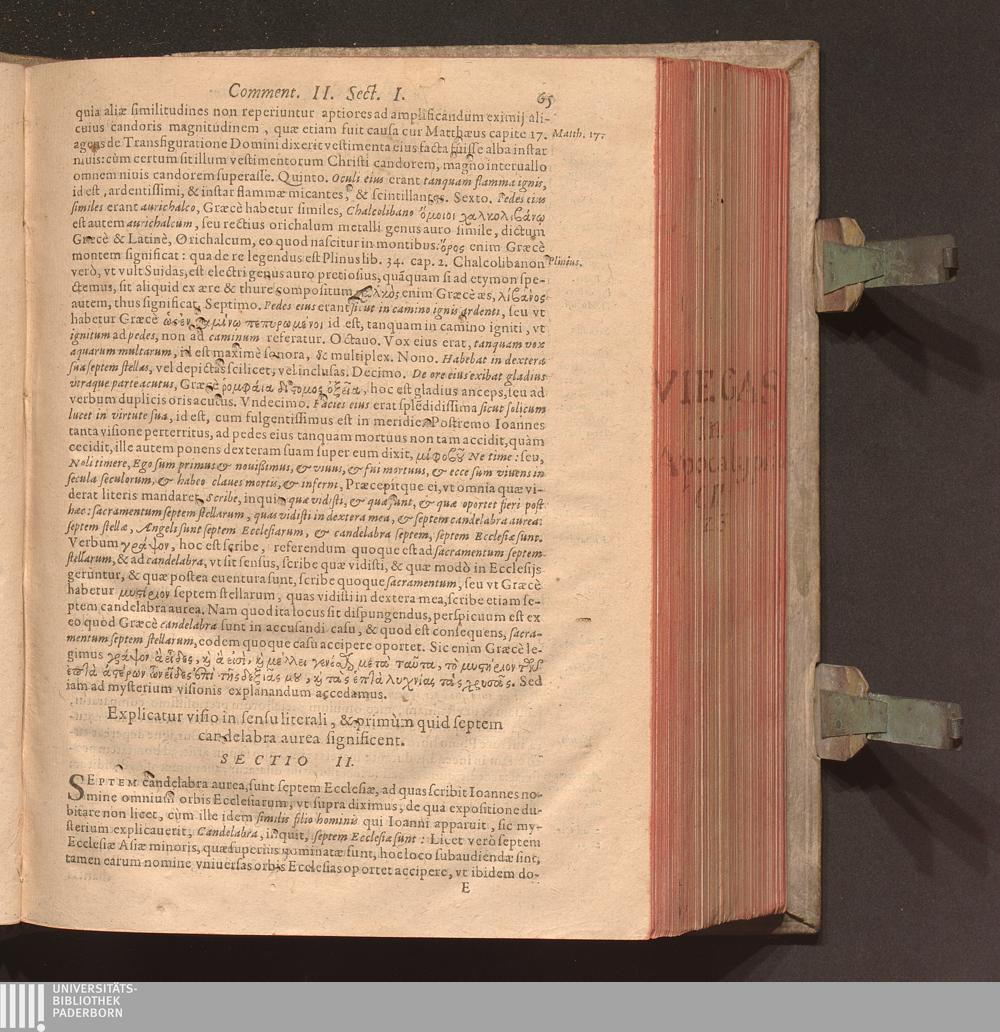 Comment. II. Sect. I. 65
quia aliæ similitudines non reperiuntur aptiores ad amplificandum eximij ali-
cuius candoris magnitudinem, quæ etiam fuit causa cur Matthæus capite 17. Matth. 17.
agens de Transfiguratione Domini dixerit vestimenta eius facta fuisse alba instar
niuis: cùm certum sit illum vestimentorum Christi candorem, magno interuallo
omnem niuis candorem superasse. Quinto. Oculi eius erant tanquam flamma ignis,
id est, ardentissimi, & instar flammæ micantes, & scintillantes. Sexto. Pedes eius
similes erant aurichalco, Græcè habetur similes, Chalcolibano ὅμοιοι χαλκολιβάνῳ
est autem aurichalcum, seu rectius orichalum metalli genus auro simile, dictum
Græcè & Latinè, Orichalcum, eo quod nascitur in montibus: ὄρος enim Græcè
montem significat: qua de re legendus est Plinus lib. 34. cap. 2. Chalcolibanon Plinius.
verò, vt vult Suidas, est electri genus auro pretiosius, quāquam si ad etymon spe-
ctemus, sit aliquid ex ære & thure compositum χαλκὸς enim Græcè æs, λίβανος
autem, thus significat. Septimo. Pedes eius erant sicut in camino ignis ardenti, seu vt
habetur Græcè πεπυρωμένοι id est, tanquam in camino igniti, vt
ignitum ad pedes, non ad caminum referatur. Octauo. Vox eius erat, tanquam vox
aquarum multarum, id est maximè sonora, & multiplex. Nono. Habebat in dextera
sua septem stellas, vel depictas scilicet, vel inclusas. Decimo. De ore eius exibat gladius
vtraque parte acutus, Græcè ῥομφάια δίστομος ὀξεῖα, hoc est gladius anceps, seu ad
verbum duplicis oris acutus. Vndecimo. Facies eius erat splēdidissima sicut sol ic um
lucet in virtute sua, id est, cum fulgentissimus est in meridie. Postremo Ioannes
tanta visione perterritus, ad pedes eius tanquam mortuus non tam accidit, quàm
cecidit, ille autem ponens dexteram suam super eum dixit, μὴ φοβοῦ Ne time: seu,
Noli timere, Ego sum primus & nouißimus, & viuus, & fui mortuus, & ecce sum viuens in
secula seculorum, & habeo claues mortis, & inferni, Præcepitque ei, vt omnia quæ vi-
derat literis mandaret. Scribe, inquit quæ vidisti, & quæ sunt, & quæ oportet fieri post
hæc: sacramentum septem stellarum, quas vidisti in dextera mea, & septem candelabra aurea:
septem stellæ, Angeli sunt septem Ecclesiarum, & candelabra septem, septem Ecclesiæ sunt.
Verbum γράψον, hoc est scribe, referendum quoque est ad sacramentum septem
stellarum, & ad candelabra, vt sit sensus, scribe quæ vidisti, & quæ modò in Ecclesijs
geruntur, & quæ postea euentura sunt, scribe quoque sacramentum, seu vt Græcè
habetur μυστήριον septem stellarum, quas vidisti in dextera mea, scribe etiam se-
ptem candelabra aurea. Nam quod ita locus sit dispungendus, perspicuum est ex
eo quòd Græcè candelabra sunt in accusandi casu, & quod est consequens, sacra-
mentum septem stellarum, eodem quoque casu accipere oportet. Sic enim Græcè le-
gimus γράψον ἃ εἶδες, καὶ ἅ εἰσὶ, καὶ ἃ μέλλει γενέσθαι μετὰ ταῦτα, τὸ μυστήριον τῶν
ἑπτὰ ἀστέρων ὧν εἶδες ἐπὶ τῆς δεξιᾶς μου, καὶ τὰς ἑπτὰ λυχνίας τὰς χρυσᾶς. Sed
iam ad mysterium visionis explanandum accedamus.
Explicatur visio in sensu literali, & primùm quid septem
candelabra aurea significent.
SECTIO II.
SEPTEM candelabra aurea, sunt septem Ecclesiæ, ad quas scribit Ioannes no-
mine omnium orbis Ecclesiarum, vt supra diximus, de qua expositione du-
bitare non licet, cùm ille idem similis filio hominis qui Ioanni apparuit, sic my-
sterium explicauerit, Candelabra, inquit, septem Ecclesiæ sunt: Licet verò septem
Ecclesiæ Asiæ minoris, quæ superius nominatæ sunt, hoc loco subaudiendæ sint,
tamen earum nomine vniuersas orbis Ecclesias oportet accipere, vt ibidem do-
E
VIEGAS
in
Apocalyp
UNIVERSITÄTS-
BIBLIOTHEK
PADERBORN